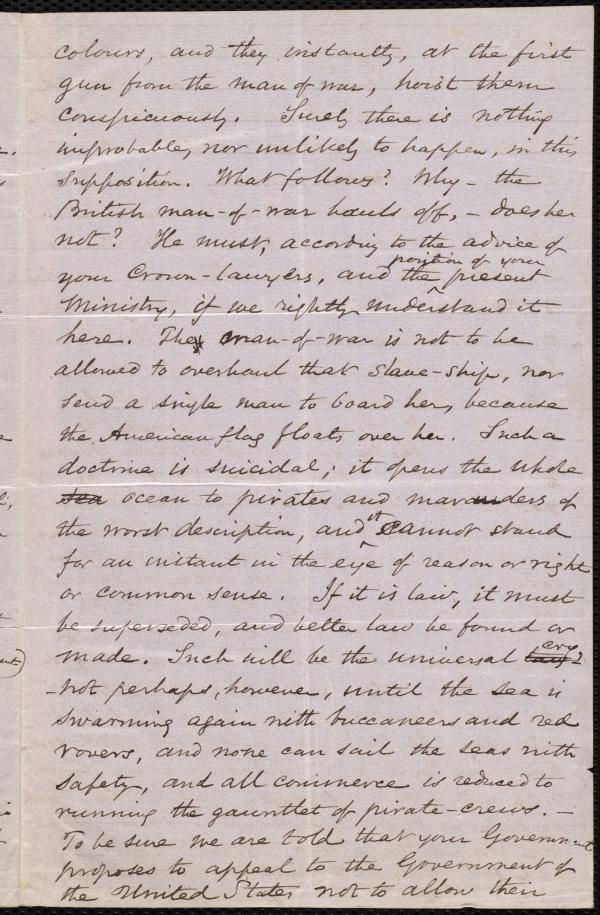 colours, and they instantly, at the first
gun from the man of war, hoist them
conspicuously. Surely there is nothing
improbable, nor unlikely to happen, in this
supposition. What follows? Why - the
British man-of-war hauls off, - does her
not? He must, according to the advice of
position of your
your Crown-lawyers, and the present
Ministry, if we rightly understand it
here. The man-of-war is not to be
allowed to overhaul that slave-ship, nor
send a single man to board her, because
the American flag floats over her. Such a
doctrine is suicidal; it opens the whole
sea ocean to pirates and marauders of
the worst description, and it cannot stand
for an instant in the eye of reason or right
or common sense. If it is law, it must
be superseded, and better law be found or
made. Such will be the universal cry
- not perhaps, however, until the sea is
swarming again with buccaneers and red
rovers, and none can sail the seas with
safety, and all commerce is reduced to
running the gauntlet of pirate-crews. -
To be sure we are told that your Government
proposes to appeal to the Government of
the United States not to allow their